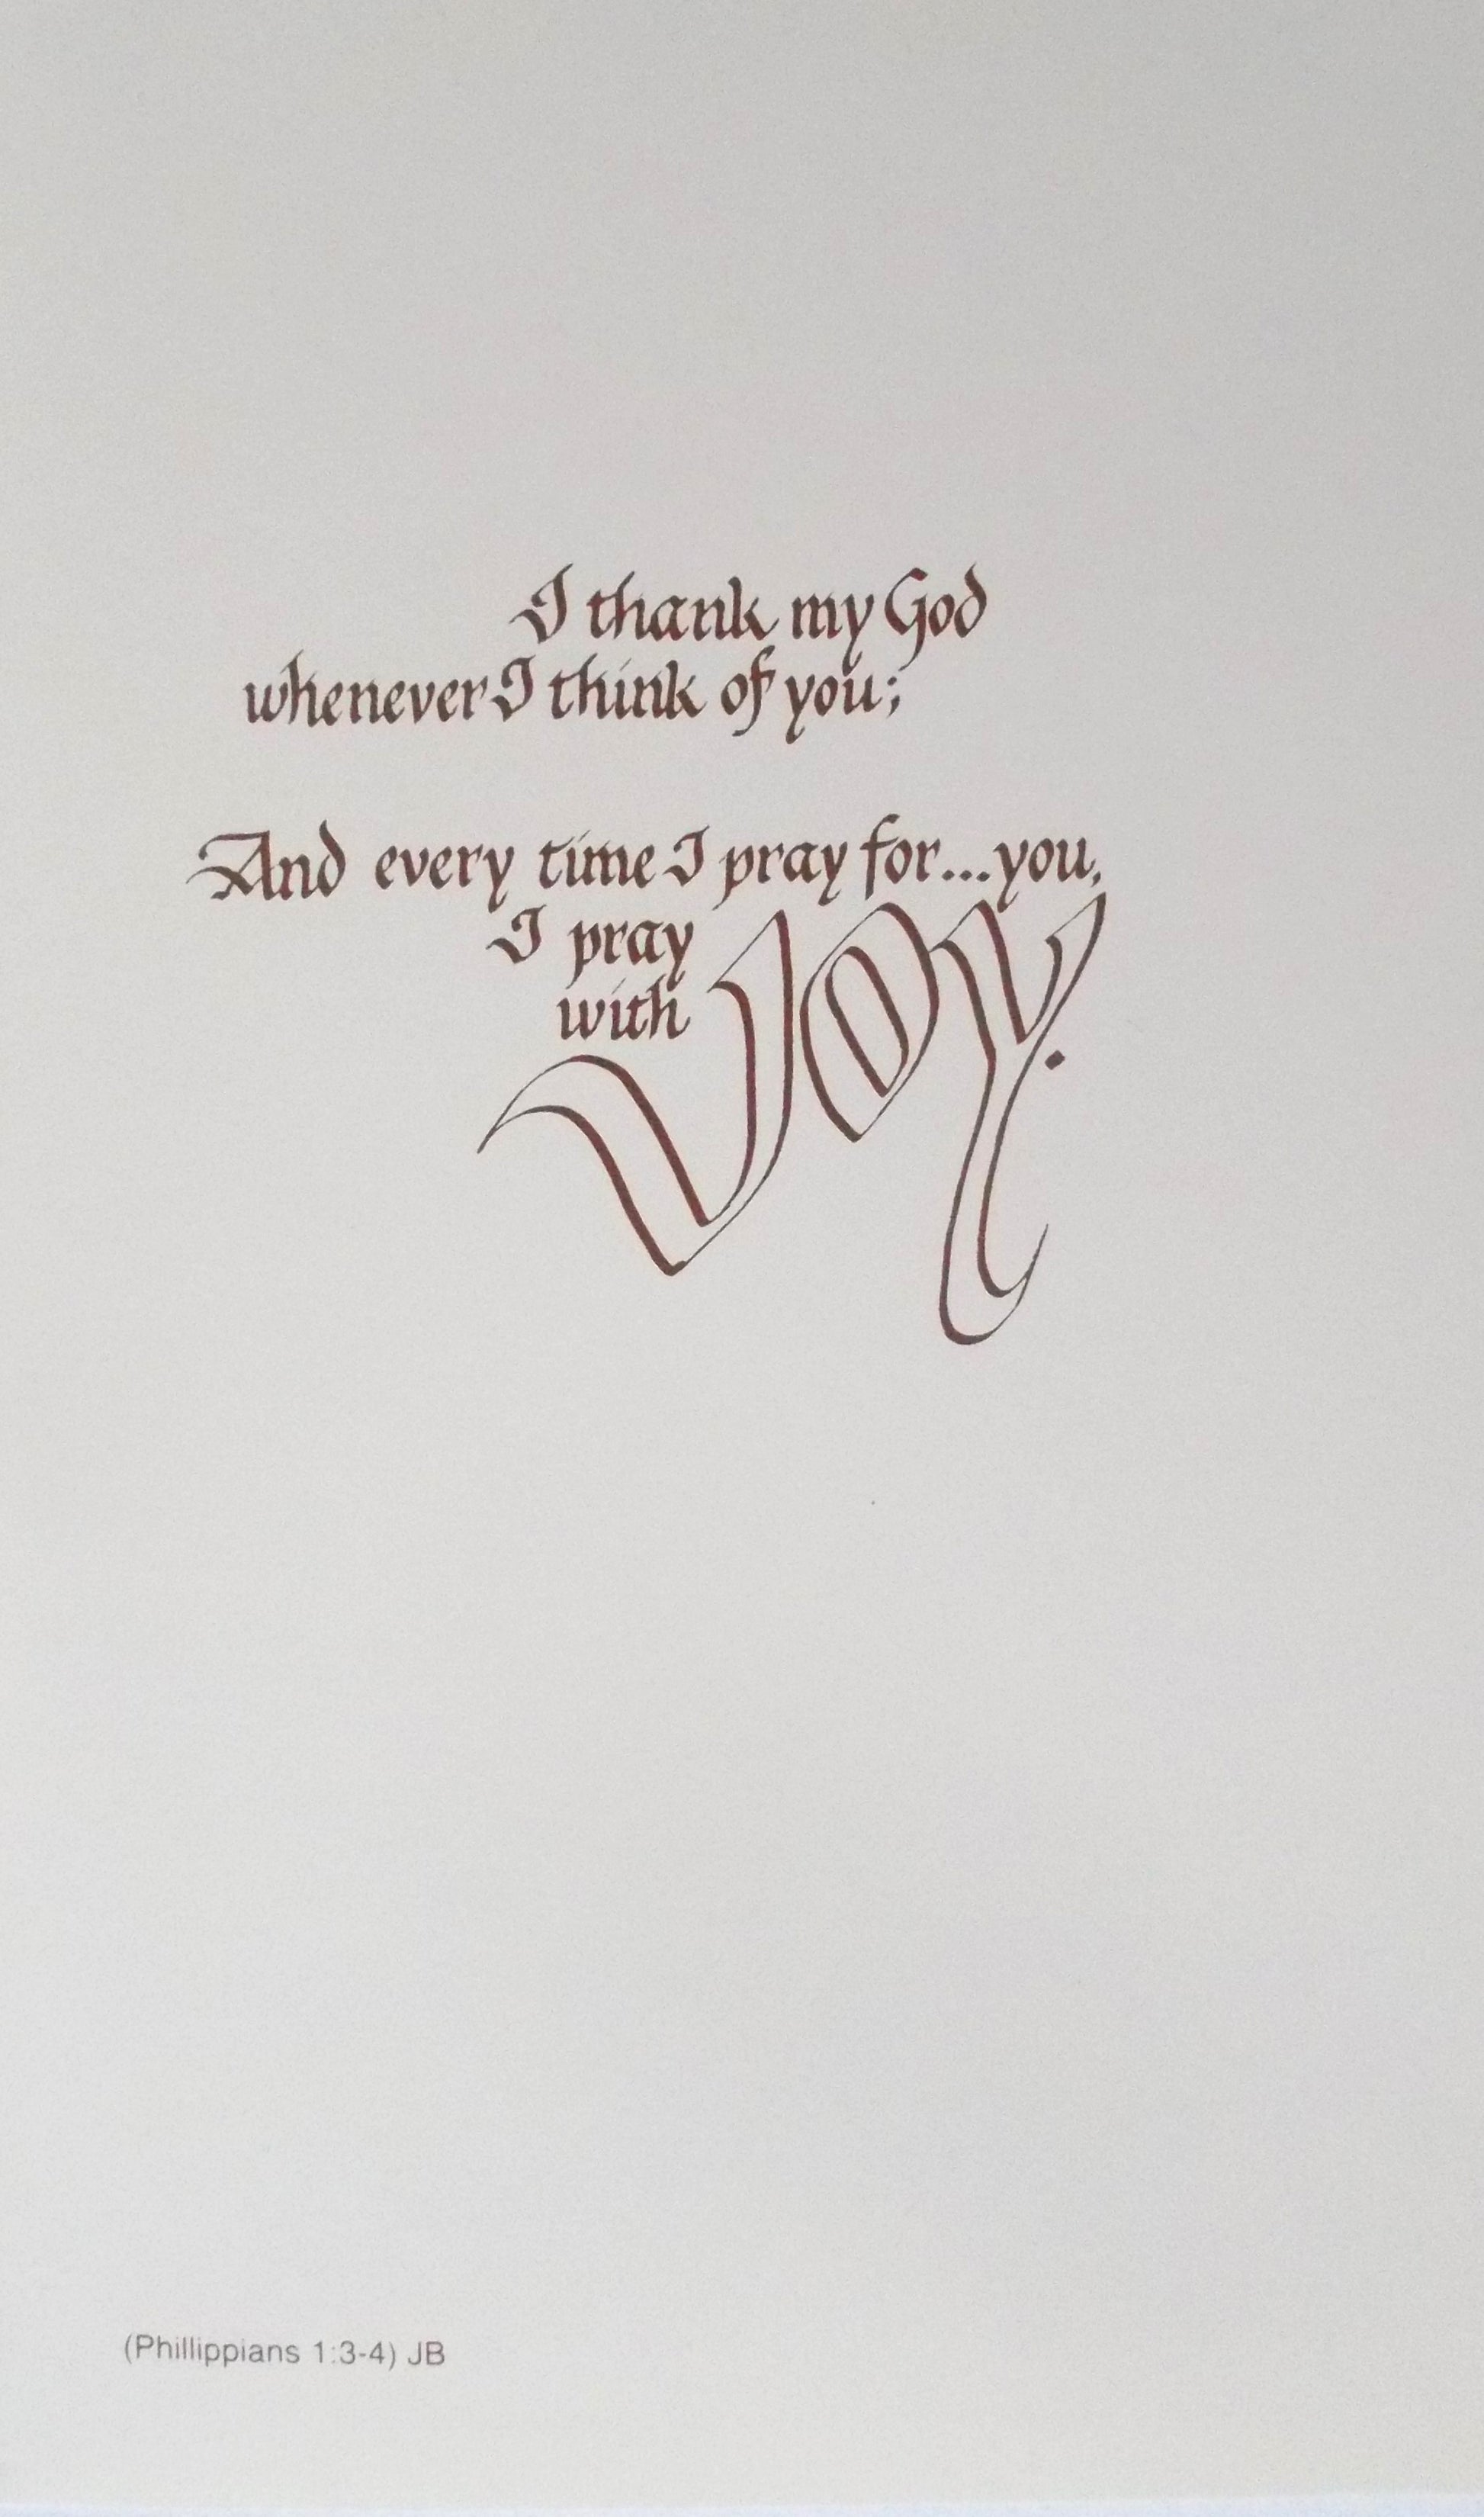 I thank my God
whenever I think of you;
And every time I pray for...you,
I pray
with
Joy.
(Phillippians 1:3-4) JB